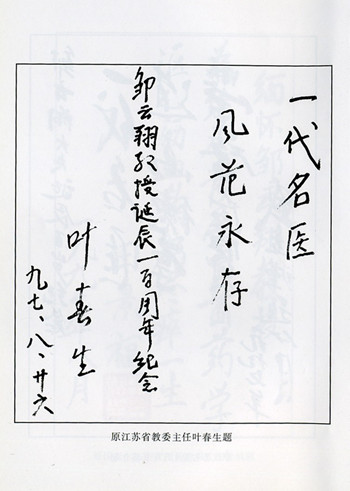 一代名医
风范永存
邹云翔教授诞辰一百周年纪念
叶春生
九七、八、廿六
原江苏省教委主任叶春生题